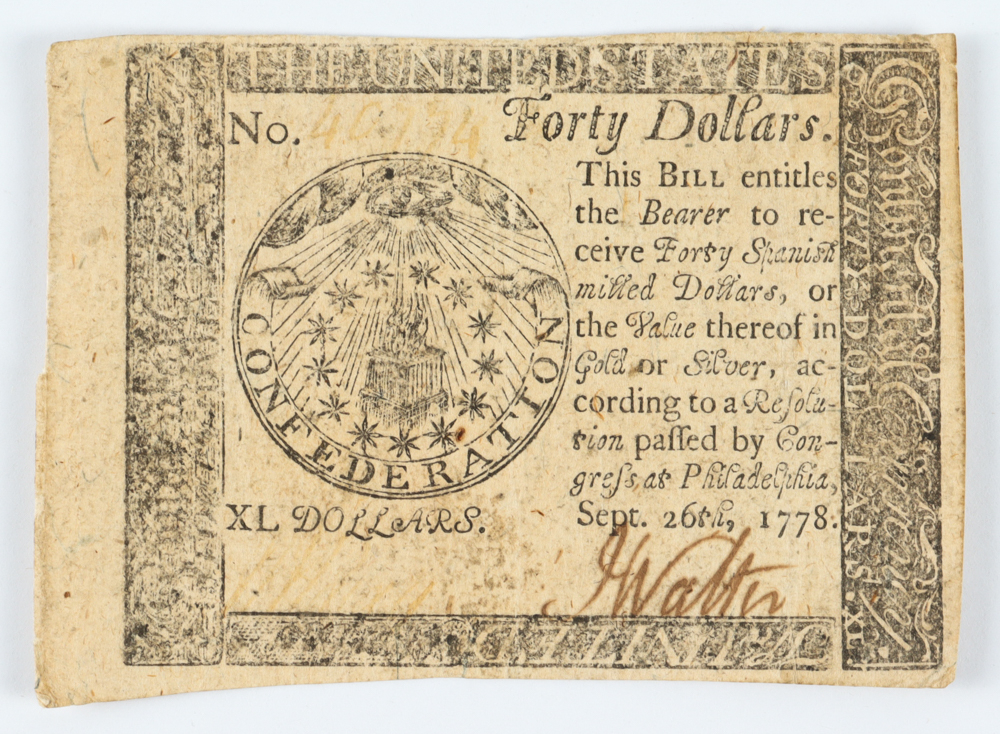 THE UNITED STATES
No. 46134 Forty Dollars.
This BILL entitles
the Bearer to re-
ceive Forty Spanish
milled Dollars, or
the Value thereof in
Gold or Silver, ac-
cording to a Reſolu-
tion paſſed by Con-
greſs at Philadelphia,
Sept. 26th, 1778.
CONFEDERATION
XL DOLLARS.
JWalter
FORTY DOLLARS. XL
Continental Currency